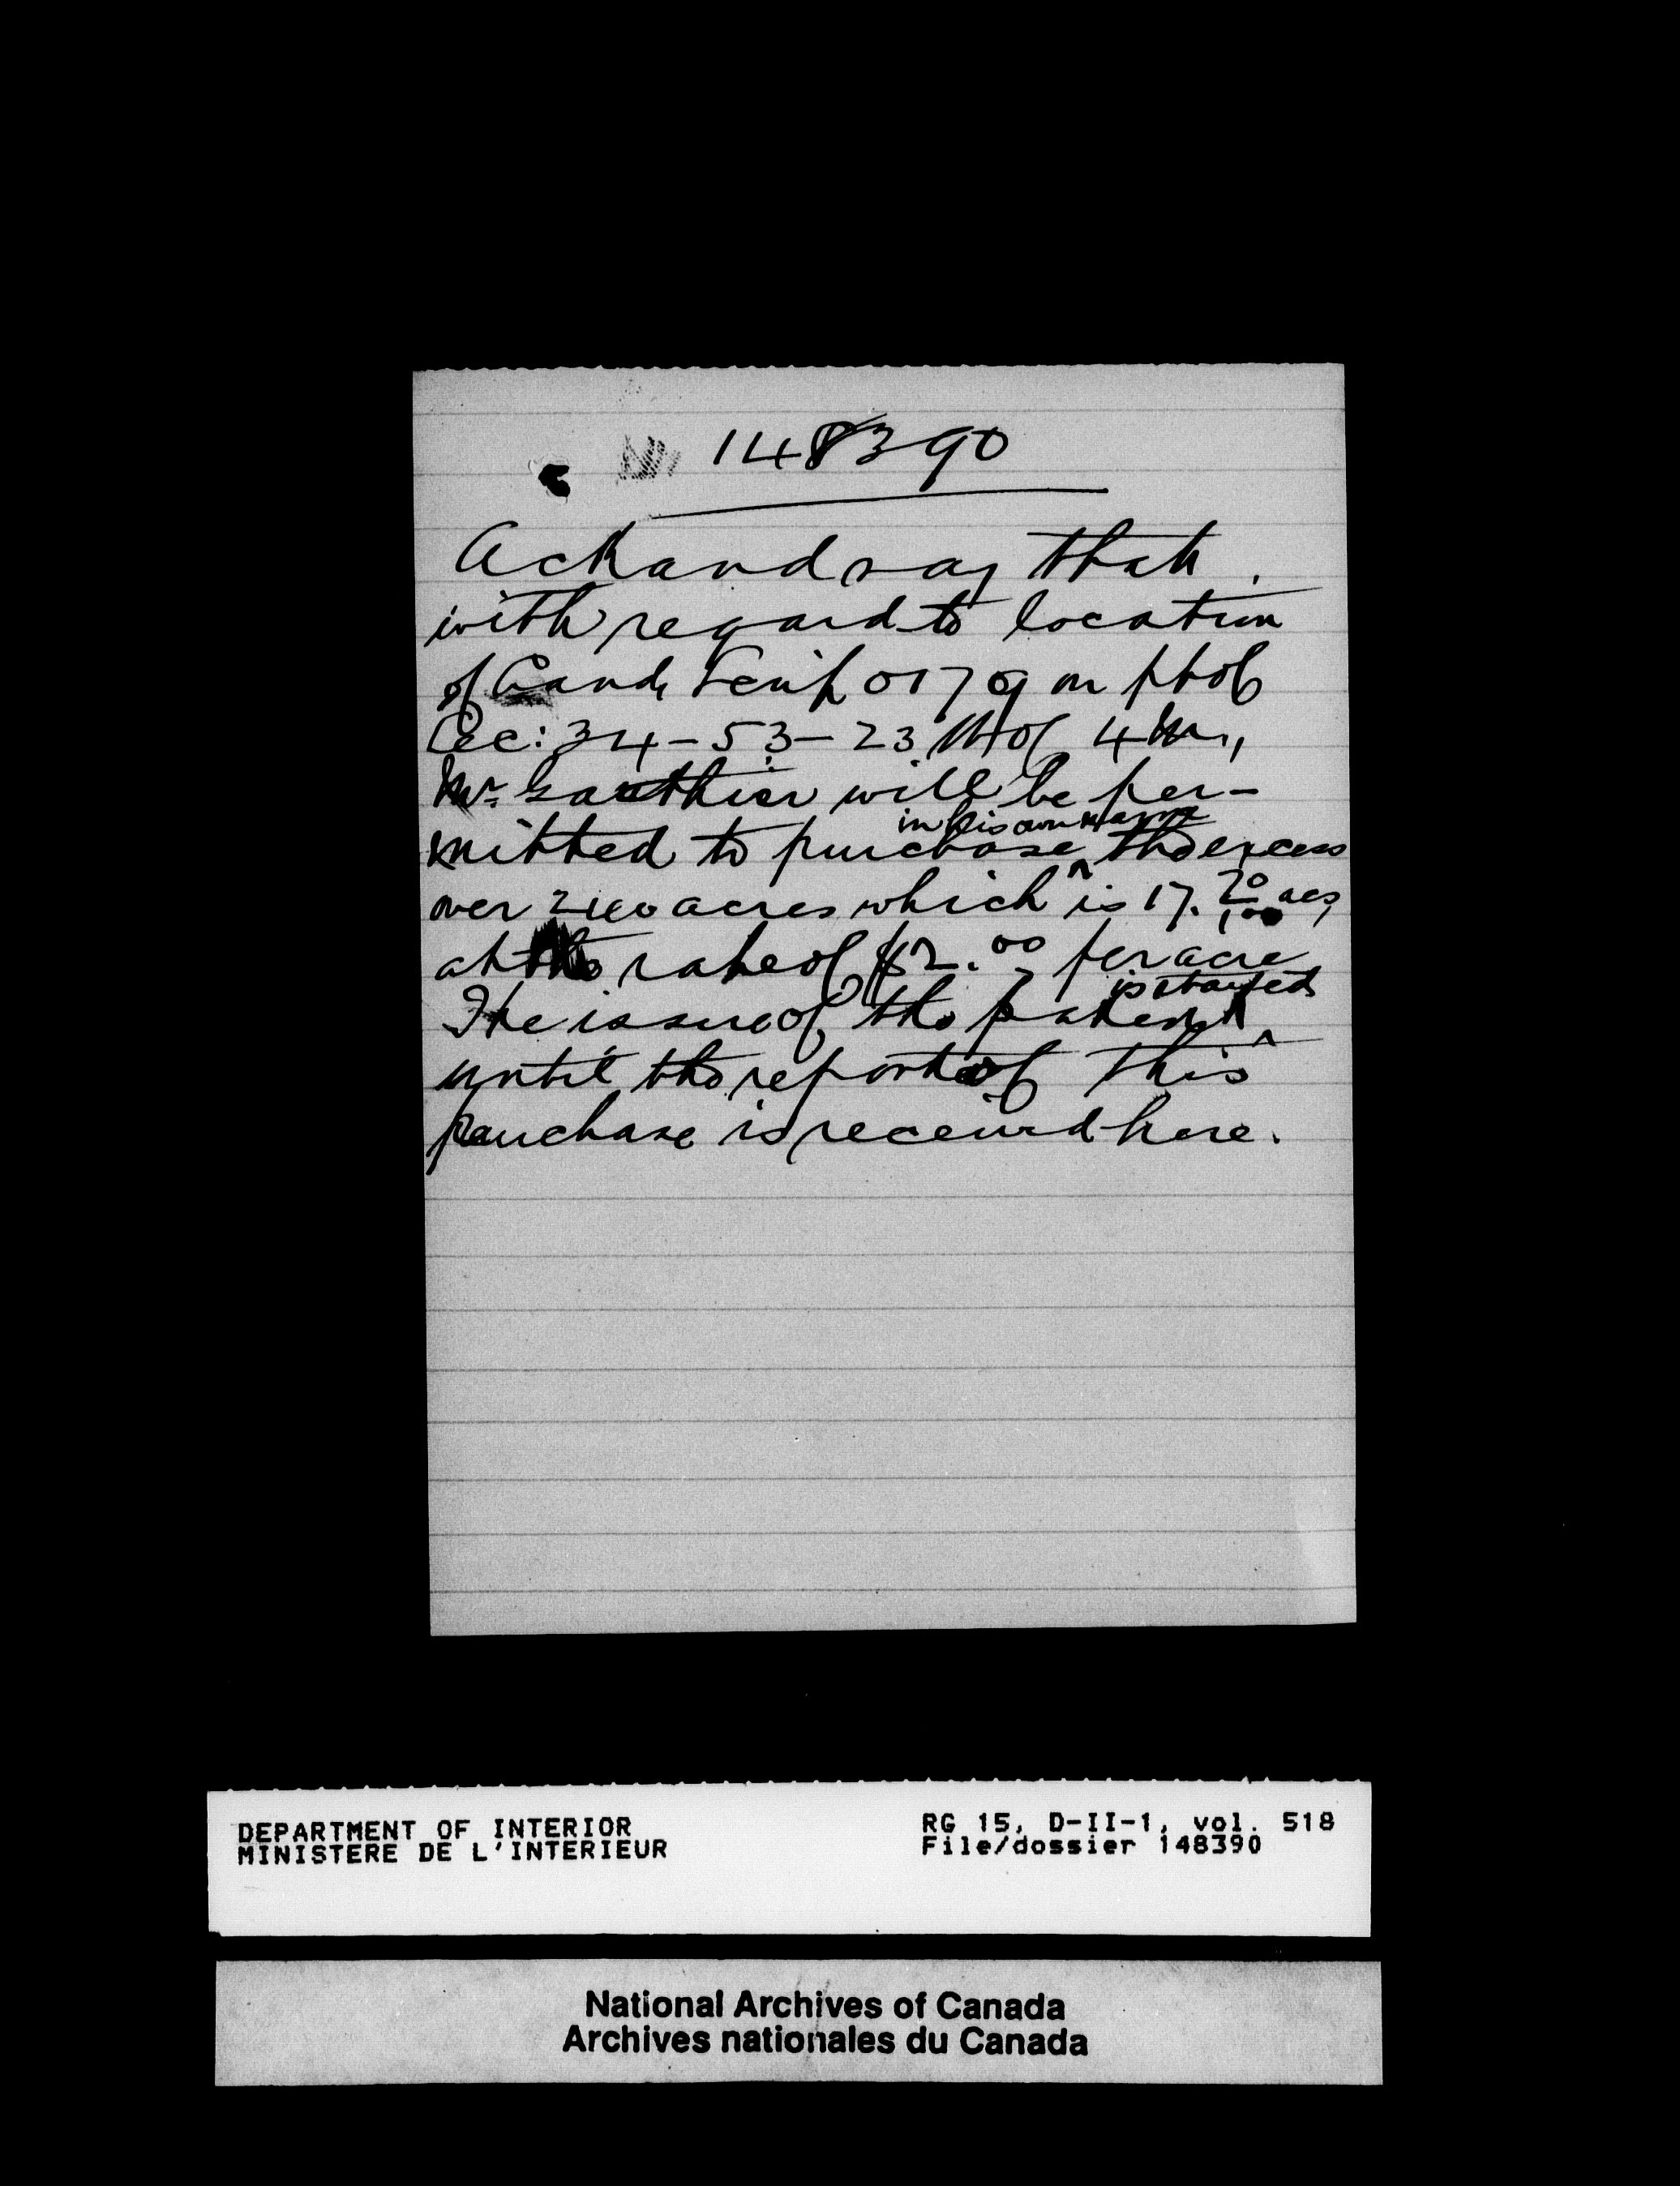 148390
Ack and say that
with regard to location
of Land Scrip 0179 on pt of
Sec: 34-53-23 W of 4 M.,
Mr. Gauthier will be per-
mitted to purchase in his own name the excess
over 240 acres which is 17.20/100 acs,
at the rate of $2.00 per acre
The issue of the patent is stayed
until the report of this
purchase is received here.
DEPARTMENT OF INTERIOR
MINISTERE DE L'INTERIEUR
RG 15, D-II-1, vol. 518
File/dossier 148390
National Archives of Canada
Archives nationales du Canada